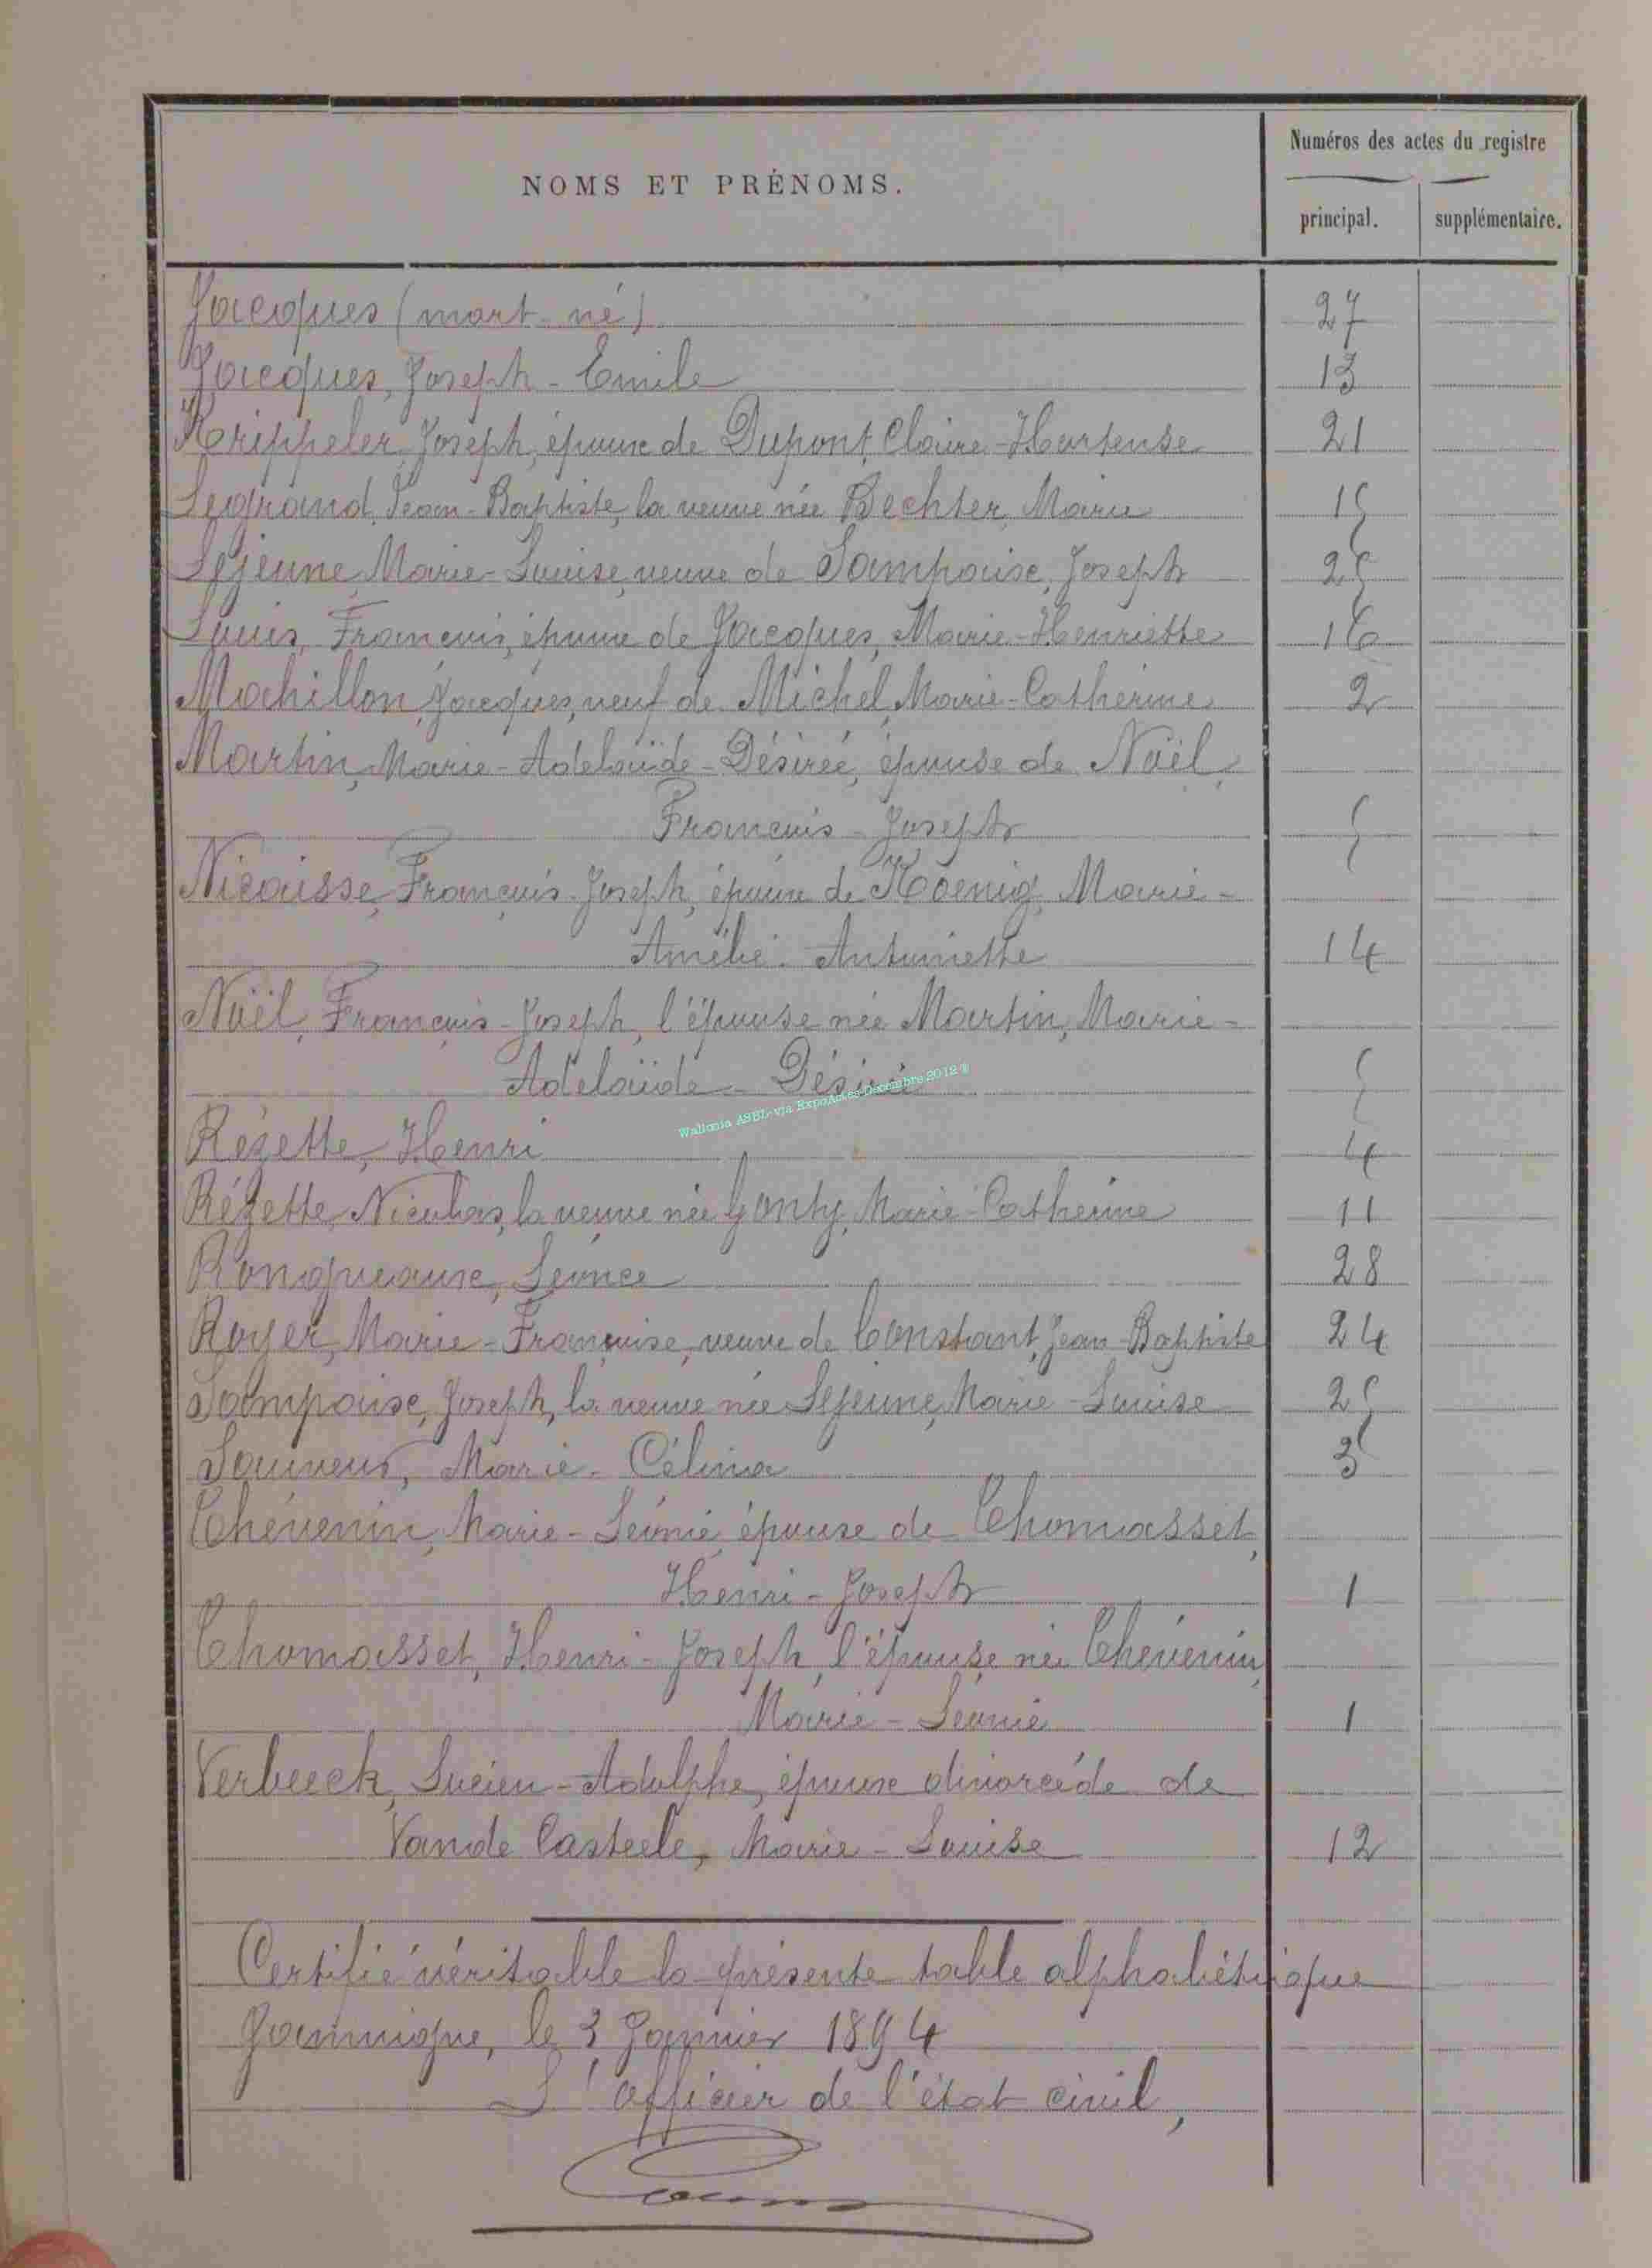 Numéros des actes du registre
NOMS ET PRÉNOMS.
principal. supplémentaire.
Jacques (mort-né) 27
Jacques, Joseph-Emile 13
Krippeler, Joseph, époux de Dupont, Claire-Hortense 21
Legrand, Jean-Baptiste, la veuve née Bechter, Marie 15
Lejeune, Marie-Louise, veuve de Sampoise, Joseph 25
Louis, François, époux de Jacques, Marie-Henriette 16
Machillon, Jacques, veuf de Michel, Marie-Catherine 2
Martin, Marie-Adelaïde-Désirée, épouse de Noël,
François-Joseph 5
Nicaisse, François-Joseph, époux de Koenig, Marie-
Amélie-Antoinette 14
Noël, François-Joseph, l'épouse née Martin, Marie-
Adelaïde-Désirée 5
Wallonia ASBL-via ExpoActes-Decembre 2012 ®
Rézette, Henri 4
Rézette, Nicolas, la veuve née Gonty, Marie-Catherine 11
Ronqueaux, Léonce 28
Royer, Marie-Françoise, veuve de Constant, Jean-Baptiste 24
Sampoise, Joseph, la veuve née Lejeune, Marie-Louise 25
Sauveur, Marie-Célina 3
Thévenin, Marie-Léonie, épouse de Thomasset,
Henri-Joseph 1
Thomasset, Henri-Joseph, l'épouse née Thévenin,
Marie-Léonie 1
Verbeeck, Lucien-Adolphe, époux divorcé de de
Vande Casteele, Marie-Louise 12
Certifié véritable la présente table alphabétique
Jamoigne, le 3 Janvier 1894
L'officier de l'état civil,